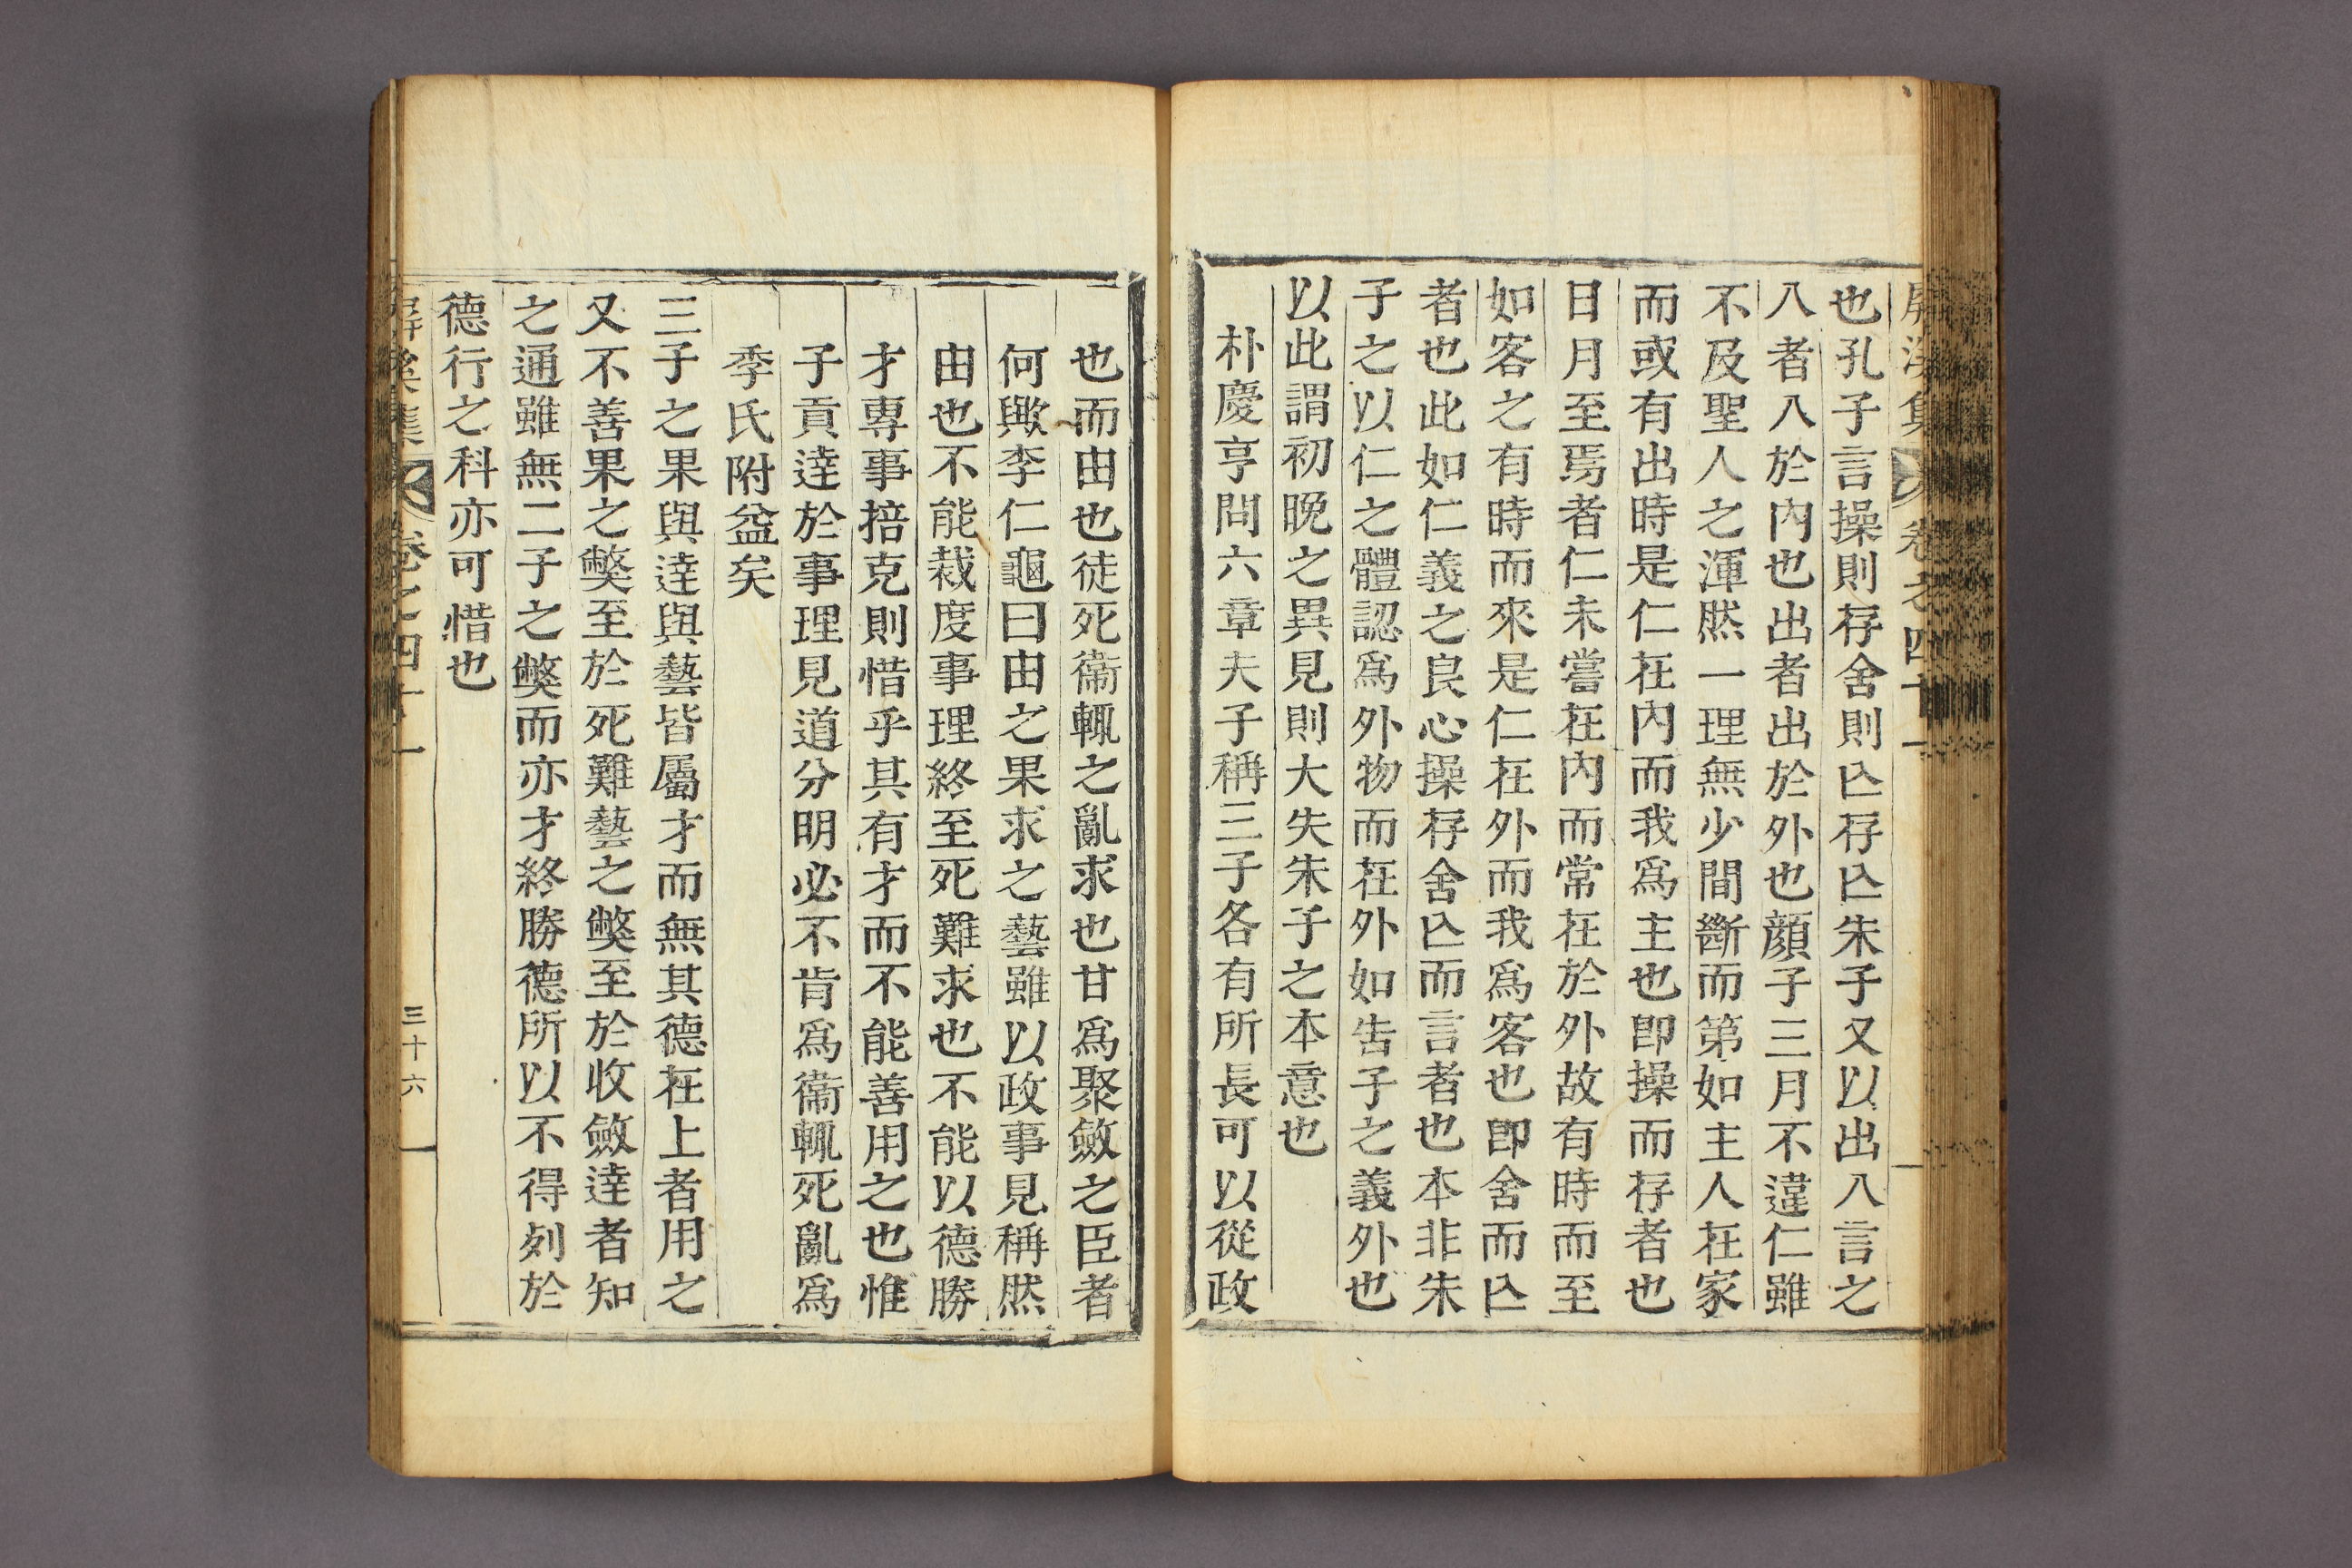 屏溪集 卷之四十一
也孔子言操則存舍則亾存亾朱子又以出入言之
入者入於內也出者出於外也顔子三月不違仁雖
不及聖人之渾然一理無少間斷而第如主人在家
而或有出時是仁在內而我爲主也卽操而存者也
日月至焉者仁未嘗在內而常在於外故有時而至
如客之有時而來是仁在外而我爲客也卽舍而亾
者也此如仁義之良心操存舍亾而言者也本非朱
子之以仁之體認爲外物而在外如告子之義外也
以此謂初晚之異見則大失朱子之本意也
朴慶亨問六章夫子稱三子各有所長可以從政
也而由也徒死衛輒之亂求也甘爲聚斂之臣者
何歟李仁龜曰由之果求之藝雖以政事見稱然
由也不能裁度事理終至死難求也不能以德勝
才專事掊克則惜乎其有才而不能善用之也惟
子貢達於事理見道分明必不肯爲衛輒死亂爲
季氏附益矣
三子之果與達與藝皆屬才而無其德在上者用之
又不善果之獘至於死難藝之獘至於收斂達者知
之通雖無二子之獘而亦才終勝德所以不得列於
德行之科亦可惜也
屏溪集 卷之四十一 三十六